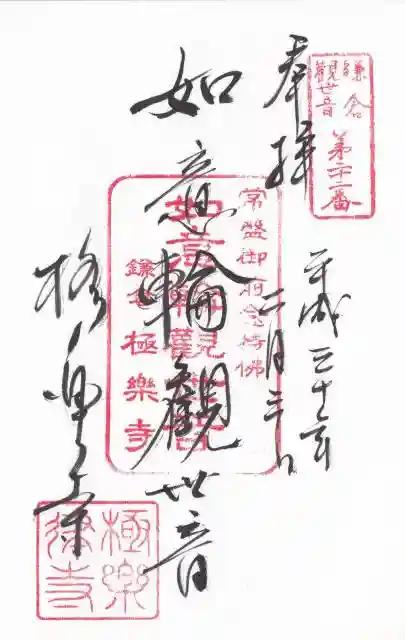 鎌倉
觀世音
第二十二番
奉拝
平成三十年
二月三日
如意輪觀世音
極楽寺
常盤御前念持佛
如意輪觀世音
鎌倉
極樂寺
極樂
律寺